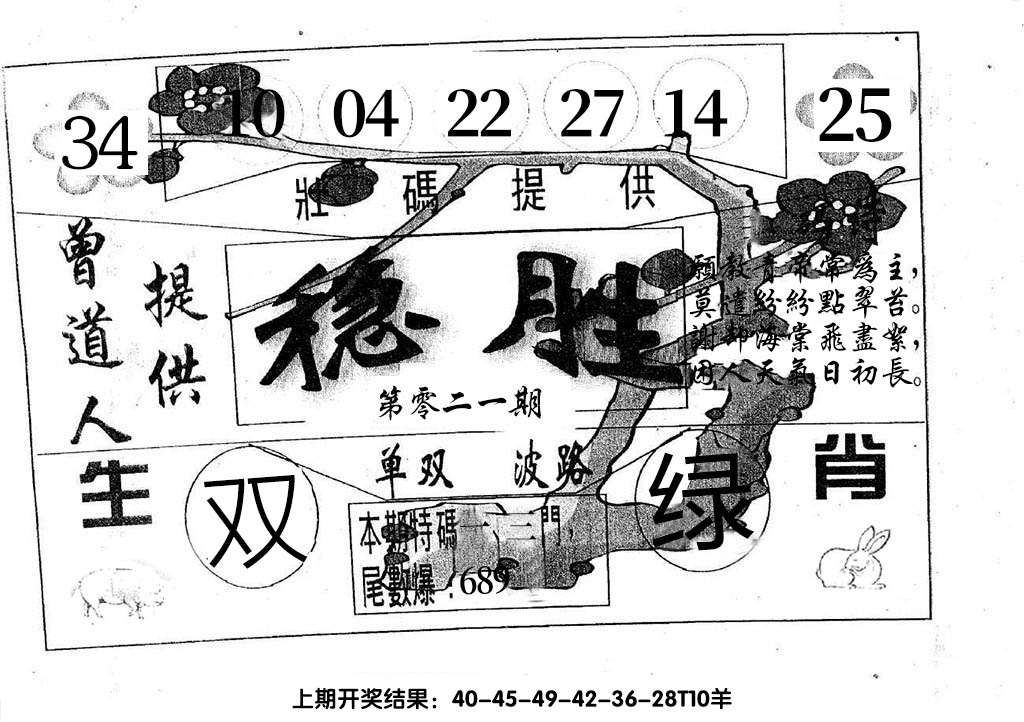 34 10 04 22 27 14 25
壯碼提供
曾道人
提供
稳胜
第零二一期
願教青帝常為主，
莫遣紛紛點翠苔。
謝却海棠飛盡絮，
困人天氣日初長。
生肖
单双 波路
双 绿
本期特碼一、三門，
尾數爆：689
上期开奖结果：40-45-49-42-36-28T10羊